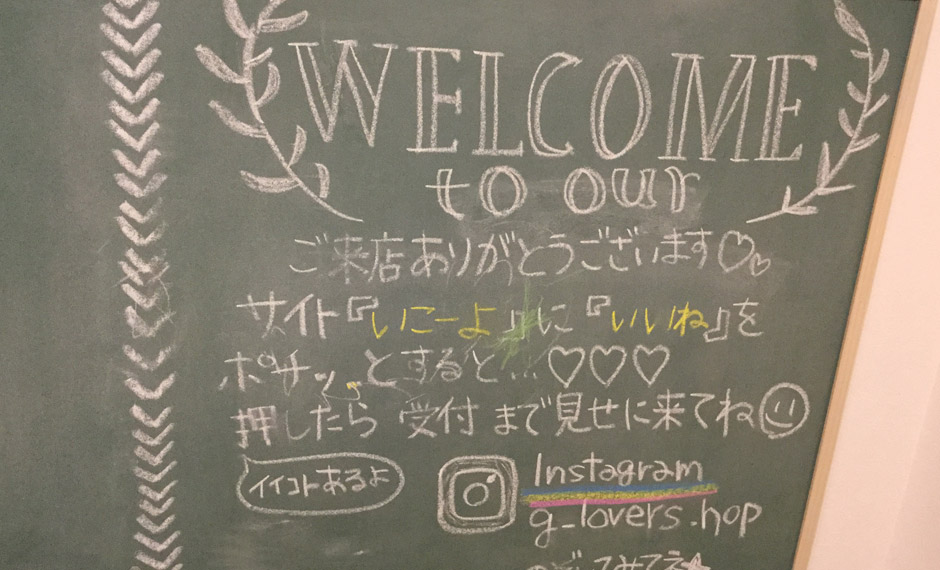 WELCOME
to our
ご来店ありがとうございます♡♡
サイト『いこーよ』に『いいね』を
とすると…♡♡♡
押したら 受付 まで見せに来てね
イイコトあるよ
Instagram
g_lovers.hop